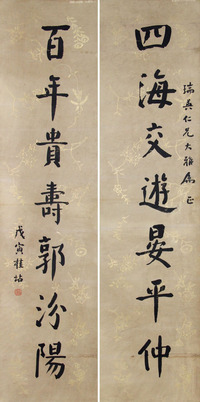 四海交遊晏平仲
瑞英仁兄大雅屬正
百年貴壽郭汾陽
戊寅桂坫